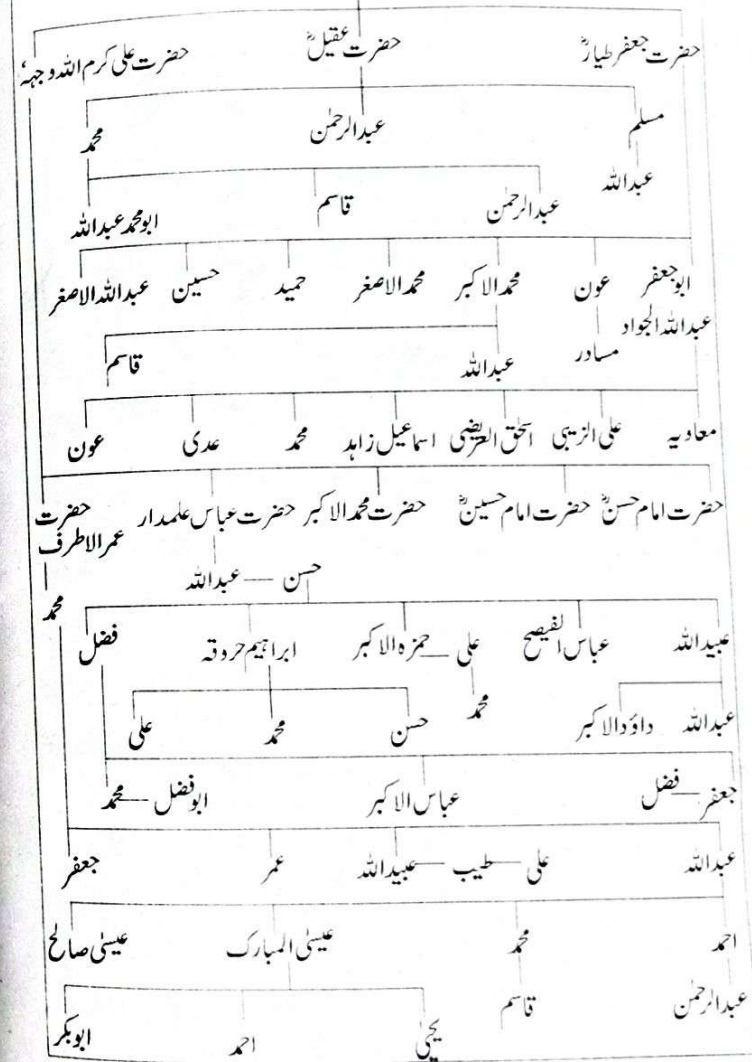 حضرت جعفر طیارؓ حضرت عقیلؓ حضرت علی کرم اللہ وجہہٗ
مسلم عبدالرحمٰن محمد
عبداللہ
عبدالرحمٰن قاسم ابومحمد عبداللہ
ابوجعفر عون محمد الاکبر محمد الاصغر حمید حسین عبداللہ الاصغر
عبداللہ الجواد مسادر عبداللہ قاسم
معاویہ علی الزیبی اسحٰق العریضی اسماعیل زاہد محمد عدی عون
حضرت امام حسنؓ حضرت امام حسینؓ حضرت محمد الاکبر حضرت عباس علمدار حضرت
عمر الاطرف
حسن — عبداللہ
محمد
عبیداللہ عباس الفیصح علی — حمزہ الاکبر ابراہیم حروقہ فضل
عبداللہ داؤد الاکبر محمد حسن محمد علی
جعفر — فضل عباس الاکبر ابوفضل — محمد
عبداللہ علی — طیب — عبیداللہ عمر جعفر
احمد محمد عیسیٰ المبارک عیسیٰ صالح
عبدالرحمٰن قاسم یحییٰ احمد ابوبکر